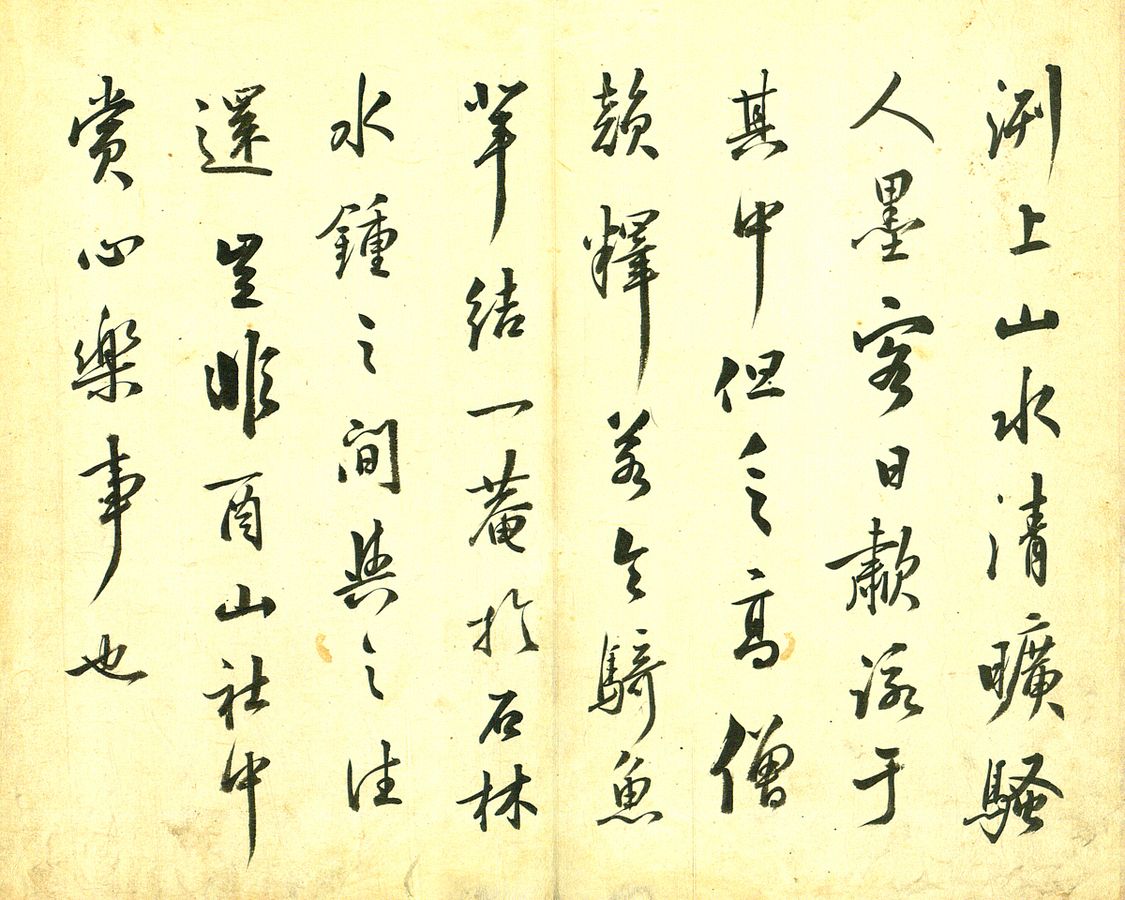 淛上山水清曠騷
人墨客日歗詠于
其中但乏高僧
韻釋若令騎魚
輩結一菴於石林
水鍾之間與之往
還豈非酉山社中
賞心樂事也